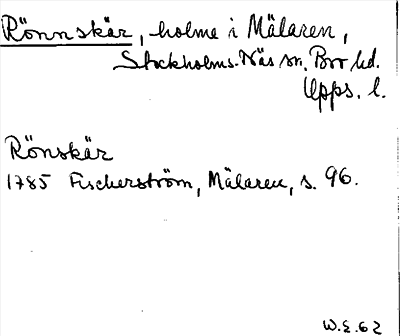 Rönnskär, holme i Mälaren,
Stockholms-Näs sn. Bro hd.
Upps. l.
Rönskär
1785 Fischerström, Mälaren, s. 96.
W.E.62